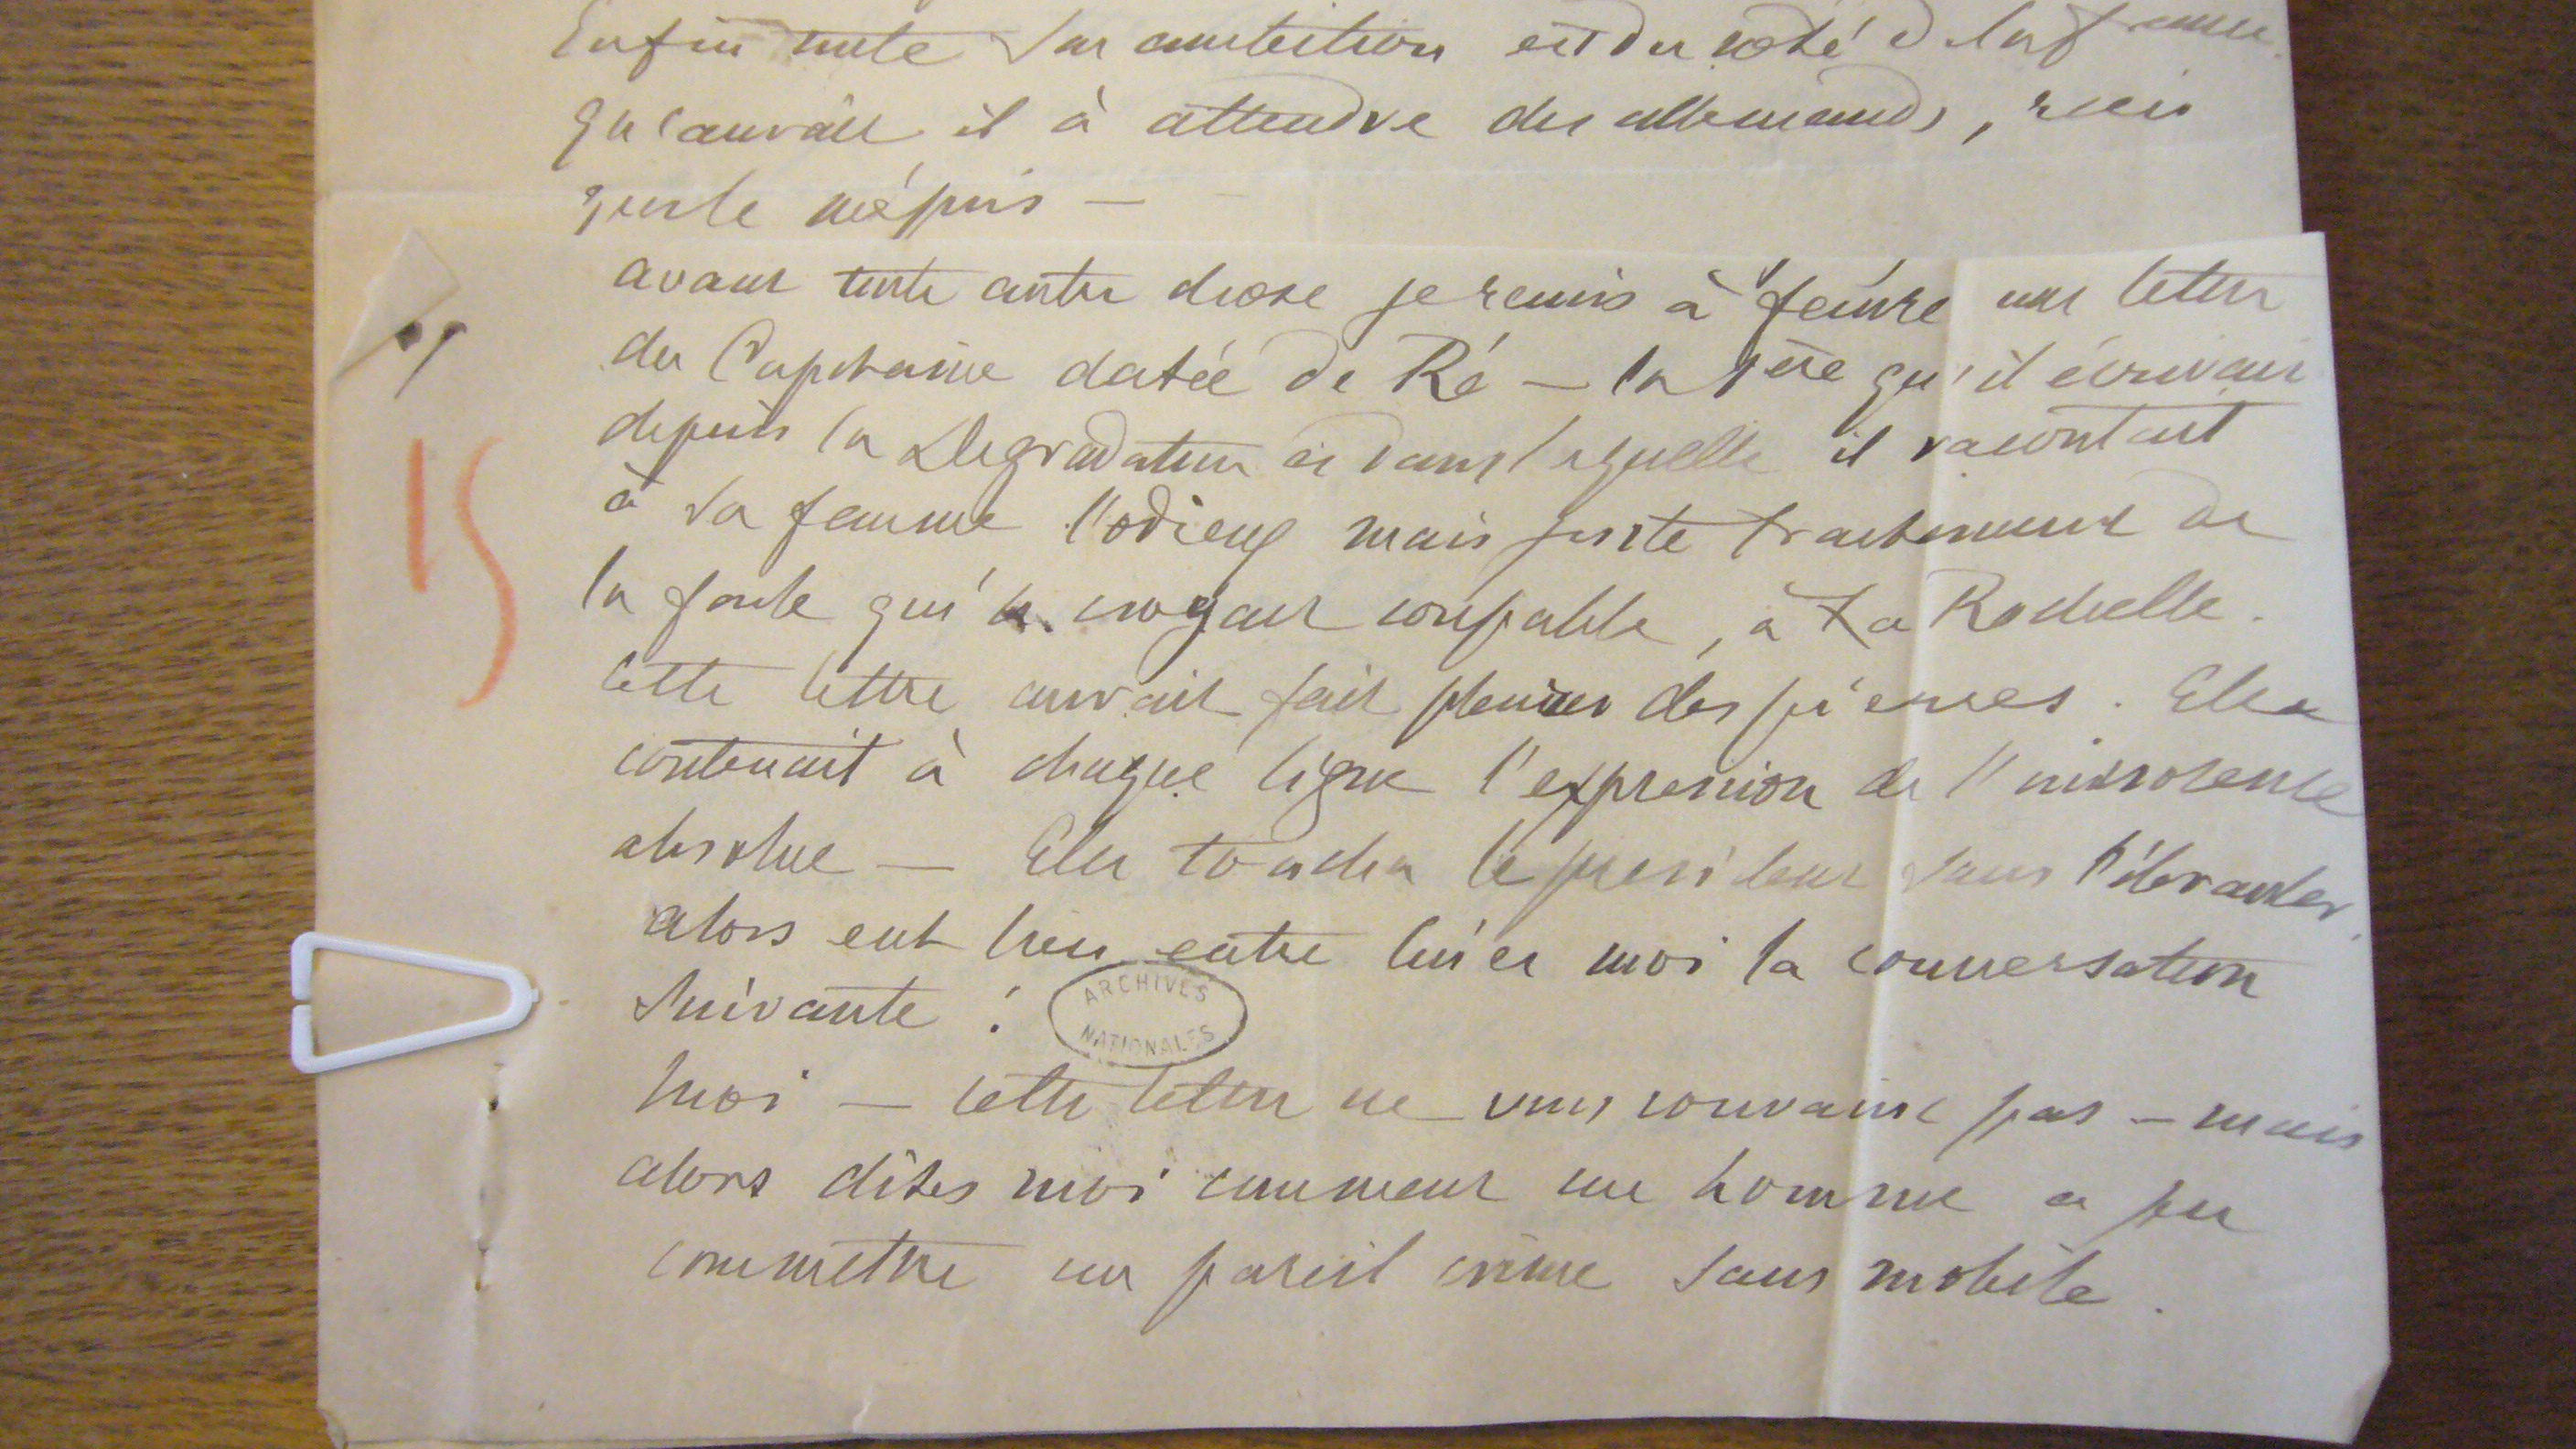 Enfin toute son ambition est du côté de la france.
Qu'aurait il à attendre des allemands, rien
que le mépris —
avant toute autre chose je remis à Feĺure une lettre
du Capitaine datée de Ré — la 1ère qu'il écrivait
depuis la Dégradation et dans laquelle il racontait
à sa femme l'odieux mais juste traitement de
la foule qui le croyait coupable, à La Rochelle.
Cette lettre aurait fait pleurer des pierres. Elle
contenait à chaque ligne l'expression de l'innocence
absolue — Elle toucha le president sans l'ébranler.
alors eut lieu entre lui et moi la conversation
suivante :
ARCHIVES
NATIONALES
Moi — cette lettre ne vous convainc pas — mais
alors dîtes moi comment un homme a pu
commettre un pareil crime sans mobile.
15